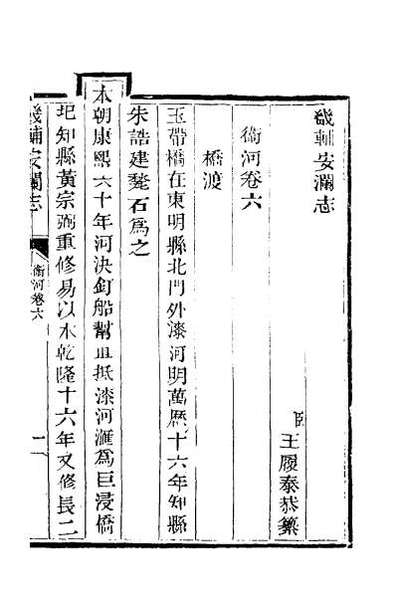 畿輔安瀾志
臣王履泰恭纂
衞河卷六
橋渡
玉帶橋在東明縣北門外漆河明萬歷十六年知縣
朱誥建甃石爲之
本朝康熙六十年河決釘船幫直抵漆河滙爲巨浸橋
圮知縣黃宗弼重修易以木乾隆十六年又修長二
畿輔安瀾志
衞河卷六